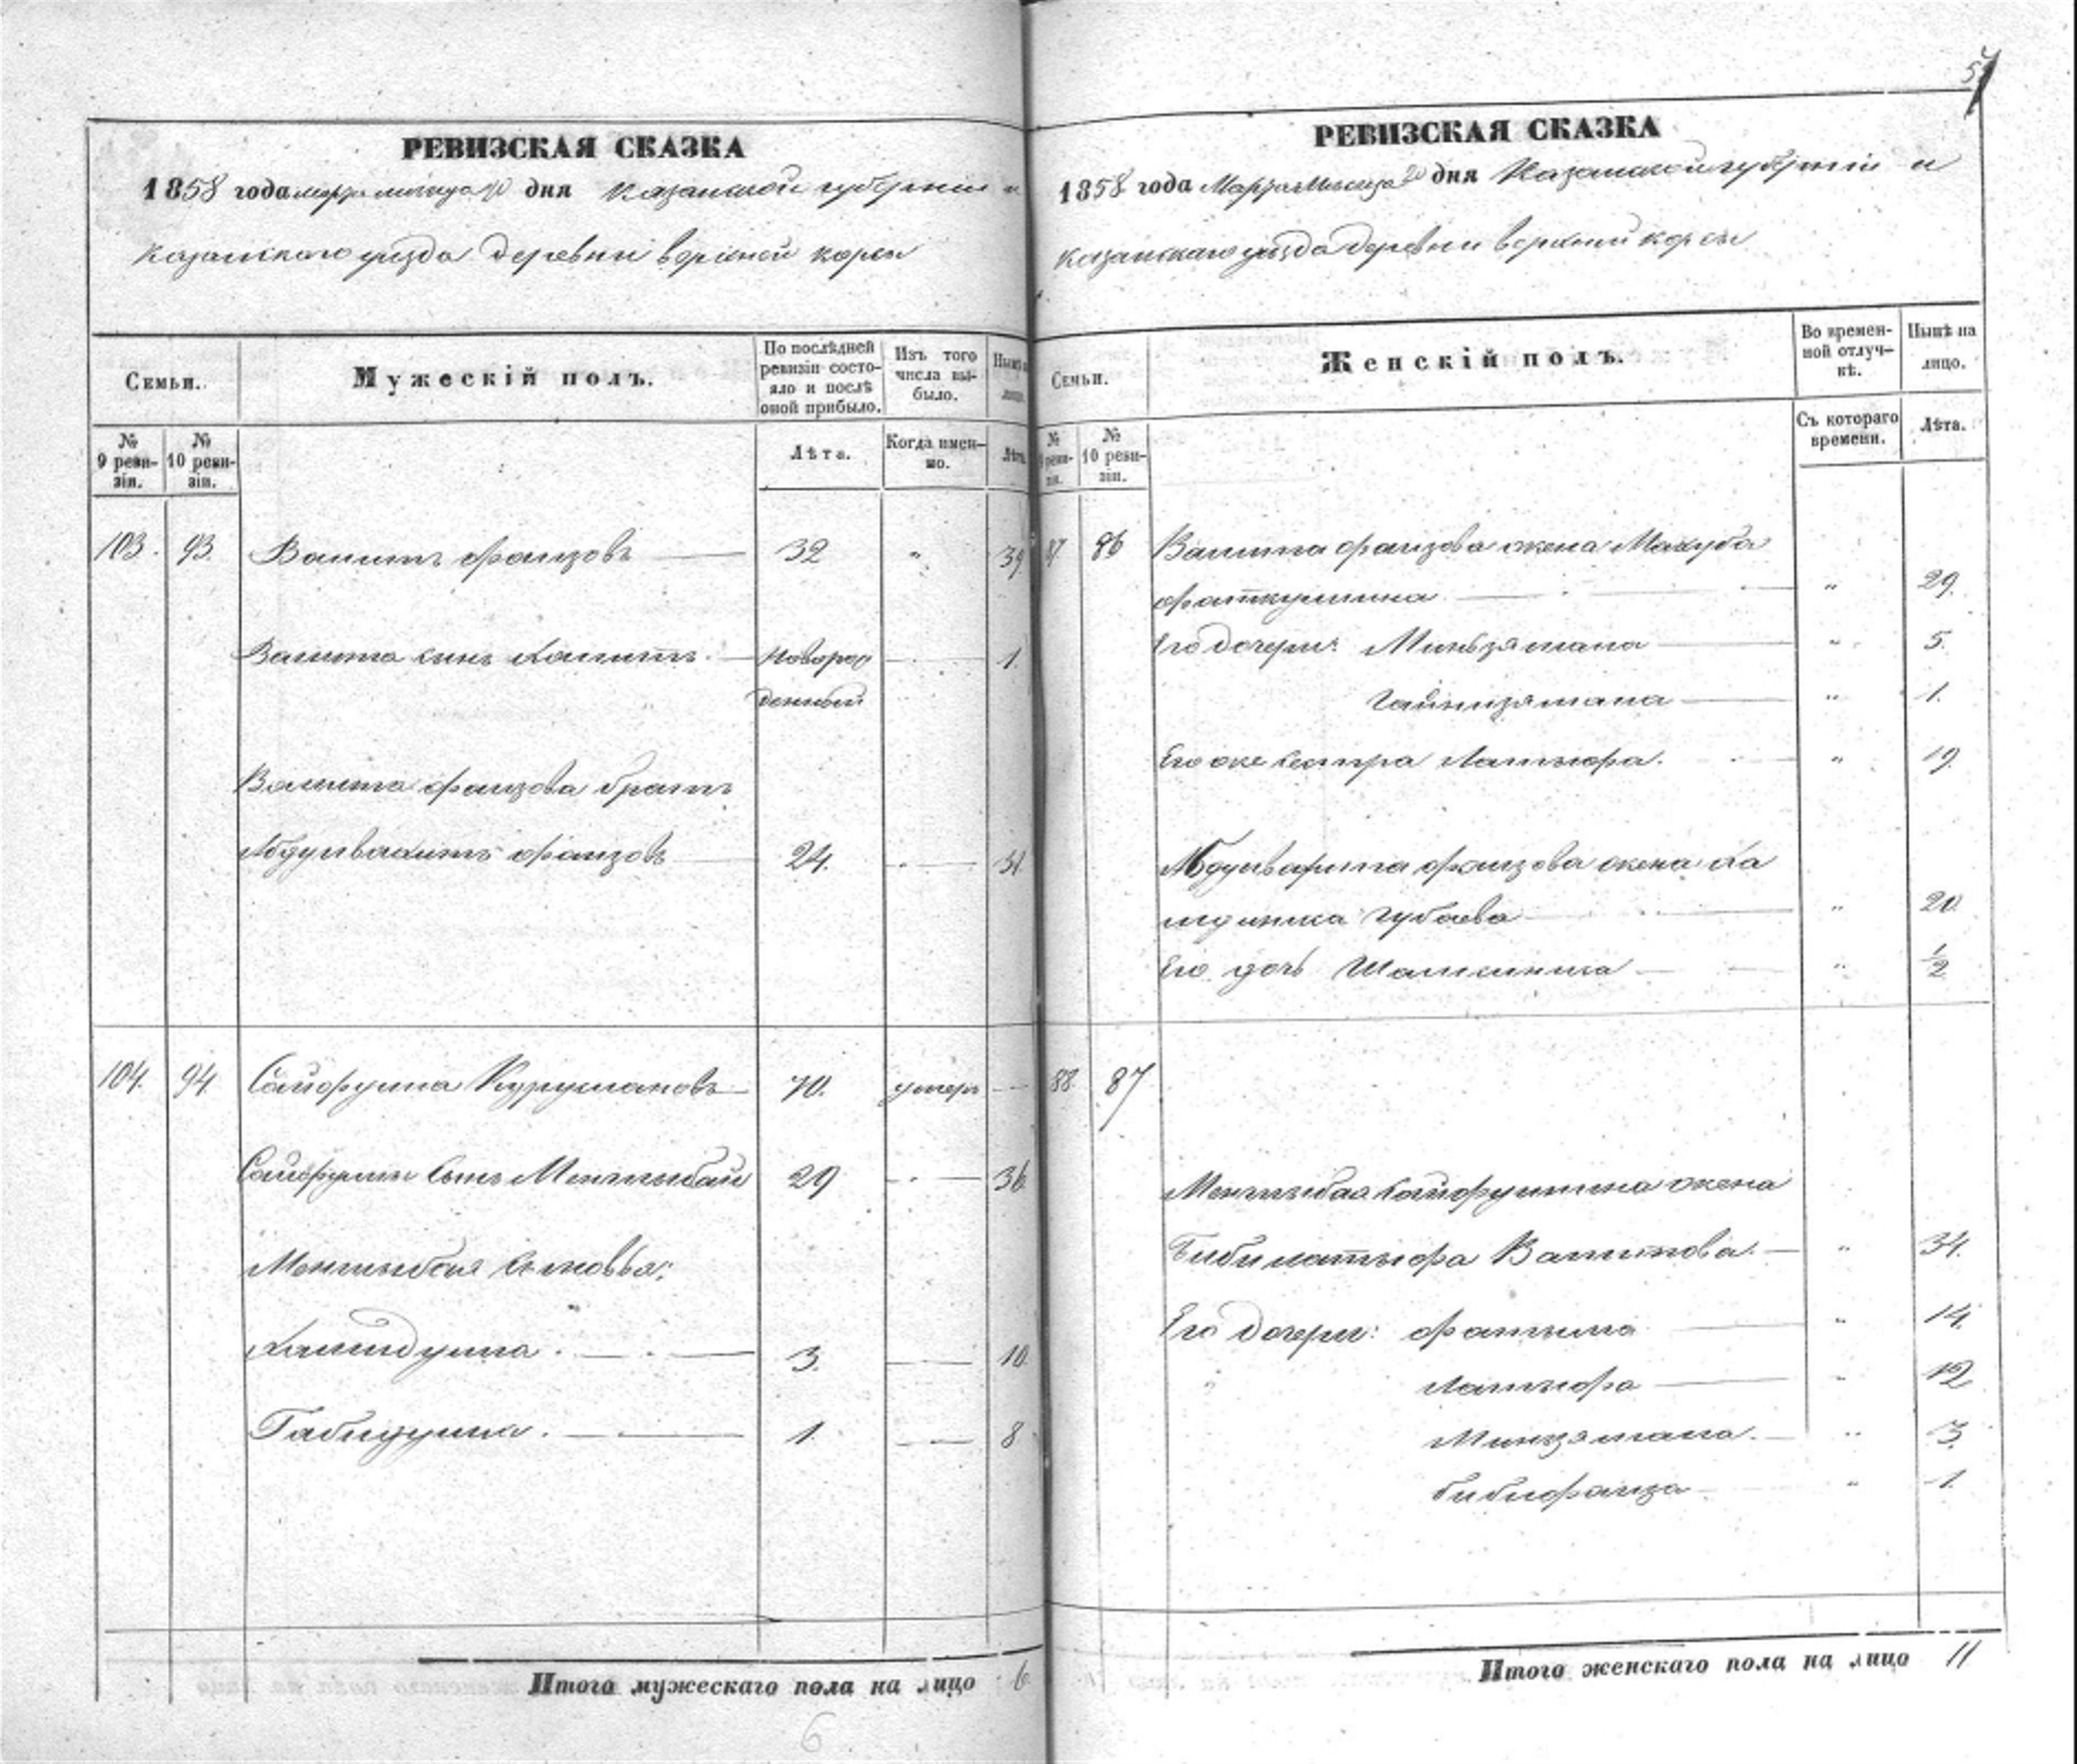 РЕВИЗСКАЯ СКАЗКА
1858 года марта месяца дня Казанской губернии и
Казанского уезда деревни верхней корсы
Семьи.
Мужескій полъ.
По послѣдней ревизіи состояло и послѣ оной прибыло.
Изъ того числа выбыло.
Нынѣ на лицо.
№ 9 ревизіи.
№ 10 ревизіи.
Лѣта.
Когда именно.
Лѣта.
103. 93. Валитъ Фаизовъ 32 " 39
Валита сынъ Халитъ. Новорож 1
денный
Валита Фаизова братъ
Абдулвахитъ Фаизовъ 24. 31
104. 94. Сайфулла Курумановъ 70. умеръ
Сайфуллы сынъ Менглыбай 29 36
Менглыбая сыновья:
Хамидулла. 3. 10
Габидулла. 1. 8
Итого мужескаго пола на лицо 6
6
РЕВИЗСКАЯ СКАЗКА
1858 года Марта Месяца дня Казанской губерніи и
Казанскаго уезда деревни верхний корсы
Семьи.
Женскій полъ.
Во временной отлучкѣ.
Нынѣ на лицо.
№ 9 ревизіи.
№ 10 ревизіи.
Съ котораго времени.
Лѣта.
87 86 Валита Фаизова жена Махуба
Фаткуллина " 29.
Его дочери: Миньзямала " 5.
Гайнизямала " 1.
Его же сестра Латыфа. " 19.
Фаизова жена Ха
Губаева " 20
Его дочь " 1/2
88 87
Менглыбая Сайфуллина жена
Бибилатыфа Валитова. " 34.
Его дочери: Фатыма " 14.
Латыфа " 12
Минзямала. " 3.
Бибифаиза " 1.
Итого женскаго пола на лицо 11